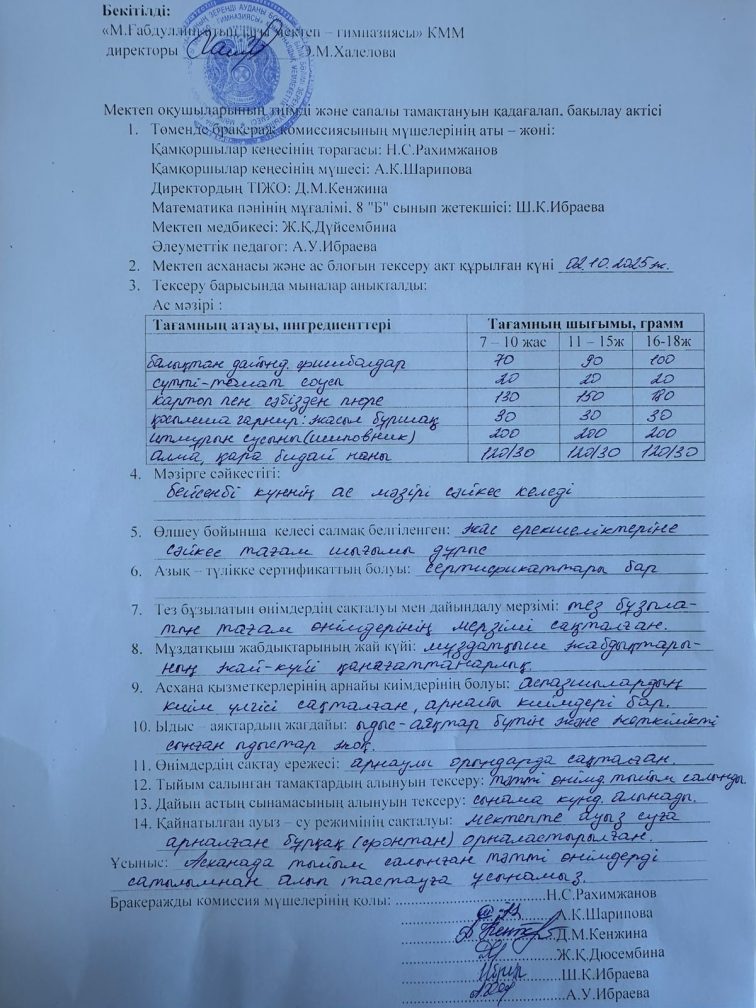 Бекітілді:
«М.Ғабдуллин атындағы мектеп – гимназиясы» КММ
директоры Э.М.Халелова
Мектеп оқушыларының тиімді және сапалы тамақтануын қадағалап, бақылау актісі
1. Төменде бракераж комиссиясының мүшелерінің аты – жөні:
Қамқоршылар кеңесінің төрағасы: Н.С.Рахимжанов
Қамқоршылар кеңесінің мүшесі: А.К.Шарипова
Директордың ТІЖО: Д.М.Кенжина
Математика пәнінің мұғалімі, 8 "Б" сынып жетекшісі: Ш.К.Ибраева
Мектеп медбикесі: Ж.Қ.Дүйсембина
Әлеуметтік педагог: А.У.Ибраева
2. Мектеп асханасы және ас блогын тексеру акт құрылған күні 02.10.2025ж.
3. Тексеру барысында мыналар анықталды:
Ас мәзірі :
Тағамның атауы, ингредиенттері Тағамның шығымы, грамм
7 – 10 жас 11 – 15ж 16-18ж
балықтан дайынд. фишболдар 70 90 100
сүтті-томат соусы 20 20 20
картоп пен сәбізден пюре 130 150 180
қосымша гарнир: жасыл бұршақ 30 30 30
итмұрын сусыны (шиповник) 200 200 200
алма, қара бидай наны 120/30 120/30 120/30
4. Мәзірге сәйкестігі:
бейсенбі күннің ас мәзірі сәйкес келеді
5. Өлшеу бойынша келесі салмақ белгіленген: жас ерекшеліктеріне
сәйкес тағам шығымы дұрыс
6. Азық – түлікке сертификаттың болуы: сертификаттары бар
7. Тез бұзылатын өнімдердің сақталуы мен дайындалу мерзімі: тез бұзыла-
тын тағам өнімдерінің мерзімі сақталған.
8. Мұздатқыш жабдықтарының жай күйі: мұздатқыш жабдықтары-
ның жай-күйі қанағаттанарлық
9. Асхана қызметкерлерінің арнайы киімдерінің болуы: аспазшылардың
киім үлгісі сақталған, арнайы киімдері бар.
10. Ыдыс – аяқтардың жағдайы: ыдыс-аяқтар бүтін және жеткілікті
сынған ыдыстар жоқ.
11. Өнімдердің сақтау ережесі: арнаулы орындарда сақталған.
12. Тыйым салынған тамақтардың алынуын тексеру: тәтті өнімд. тыйым салынды.
13. Дайын астың сынамасының алынуын тексеру: сынама күнд. алынады.
14. Қайнатылған ауыз – су режимінің сақталуы: мектепте ауыз суға
арналған бұрқақ (фонтан) орналастырылған.
Ұсыныс: Асханада тыйым салынған тәтті өнімдерді
сатылымнан алып тастауға ұсынамыз.
Бракеражды комиссия мүшелерінің қолы: Н.С.Рахимжанов
А.К.Шарипова
Д.М.Кенжина
Ж.Қ.Дюсембина
Ш.К.Ибраева
А.У.Ибраева